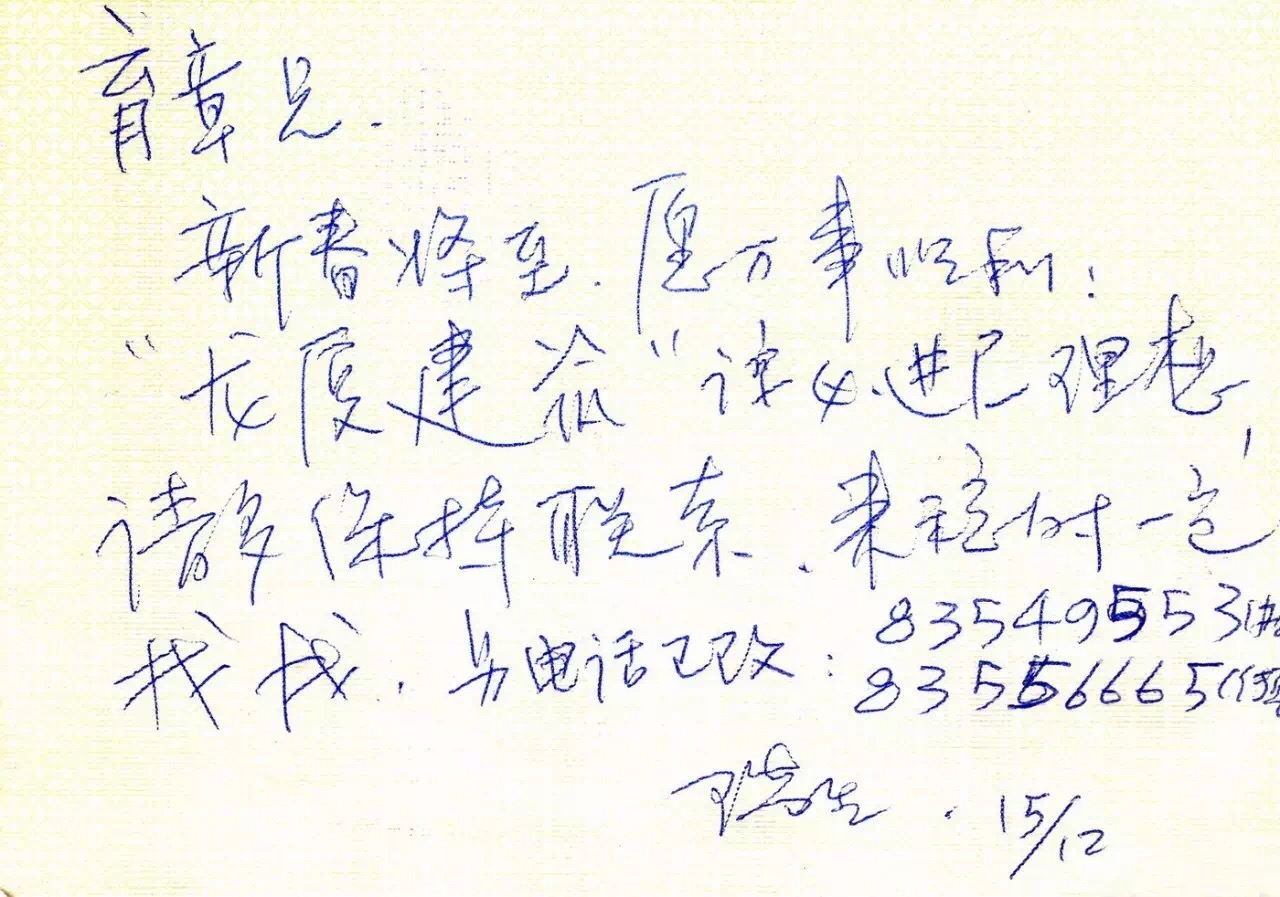 育章兄.
新春将至.愿万事顺利:
"龙厦建设"谅必进展理想,
请多保持联系.来穗时一定
找我.另电话已改:83549553
83556665
15/12